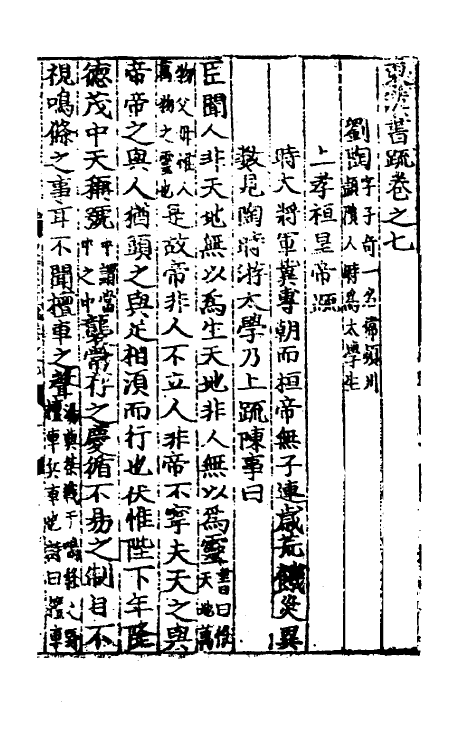 東漢書疏卷之七
劉陶字子奇一名偉潁川
潁陰人時為太學生
上孝桓皇帝疏
時大將軍冀專朝而桓帝無子連歲荒饑災異
數見陶時游太學乃上疏陳事曰
臣聞人非天地無以為生天地非人無以為靈書曰惟天地萬
物父母惟人萬物之靈也是故帝非人不立人非帝不寧夫天之與
帝帝之與人猶頭之與足相須而行也伏惟陛下年隆
德茂中天稱號中謂當中之中襲常存之慶循不易之制目不
視鳴條之事耳不聞檀車之聲湯與桀戰于鳴條之野檀車兵車也詩曰檀車